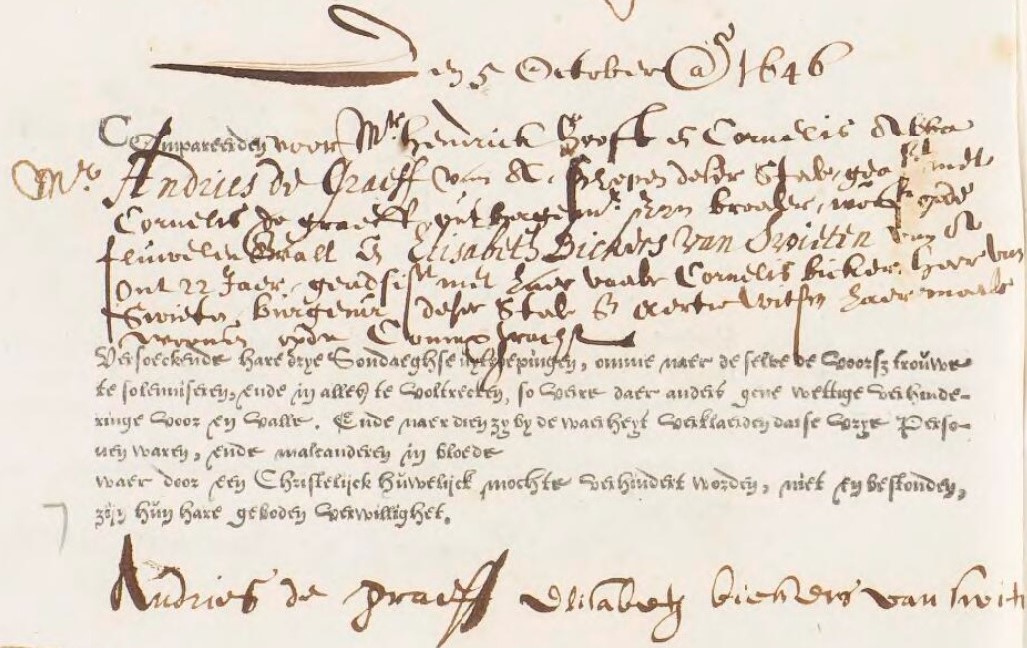 Den 5 October A° 1646
Compareerden voor Mr. Hendrick Hooft en Cornelis Abba
Mr. Andries de Graeff van A. schepen deser Stede, geast. met
Cornelis de graeff, out burgemr. zijn broeder, woont opde
fluwelen Burgwall & Elisabeth Bickers van Swieten van A
out 22 Jaer, geadsist. met haer vader Cornelis bicker, heer van
Swieten, burgemr. deser Stede & Aertie Witsen haer moeder
woonen. opde Coninxgracht
Versoeckende hare drye Sondaeghse uytroepingen, omme naer de selve de voorsz trouwe
te solemniseren, ende in alles te voltrecken, so verre daer anders gene wettige verhinde-
ringe voor en valle. Ende naer dien zy by de waerheyt verklaerden datse vrye Perso-
nen waren, ende malcanderen in bloede
waer door een Christelijck huwelijck mochte verhindert worden, niet en bestonden,
zijn hun hare geboden verwillighet.
Andries de graeff Elisabetg bickers van swiet